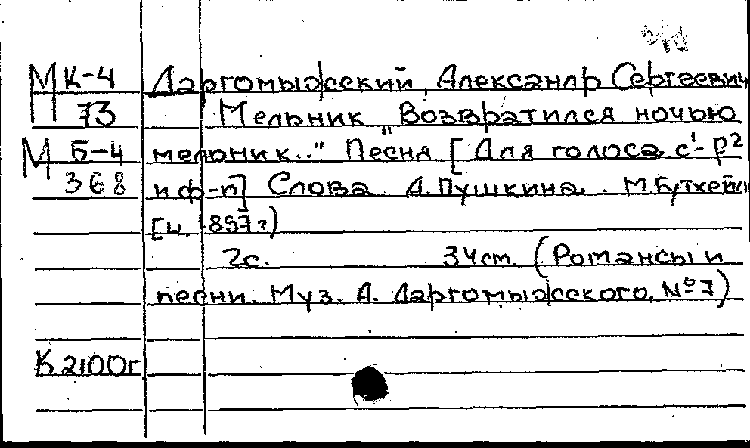 МК-4 Даргомыжский, Александр Сергеевич
73 Мельник „Возвратился ночью
М Б-4 мельник.." Песня [Для голоса c¹-p²
368 и ф-п] Слова А. Пушкина. М. Бутхейль
[ц. 1897г)
2с. 34см. (Романсы и
песни. Муз. А. Даргомыжского. №7)
К 2100г